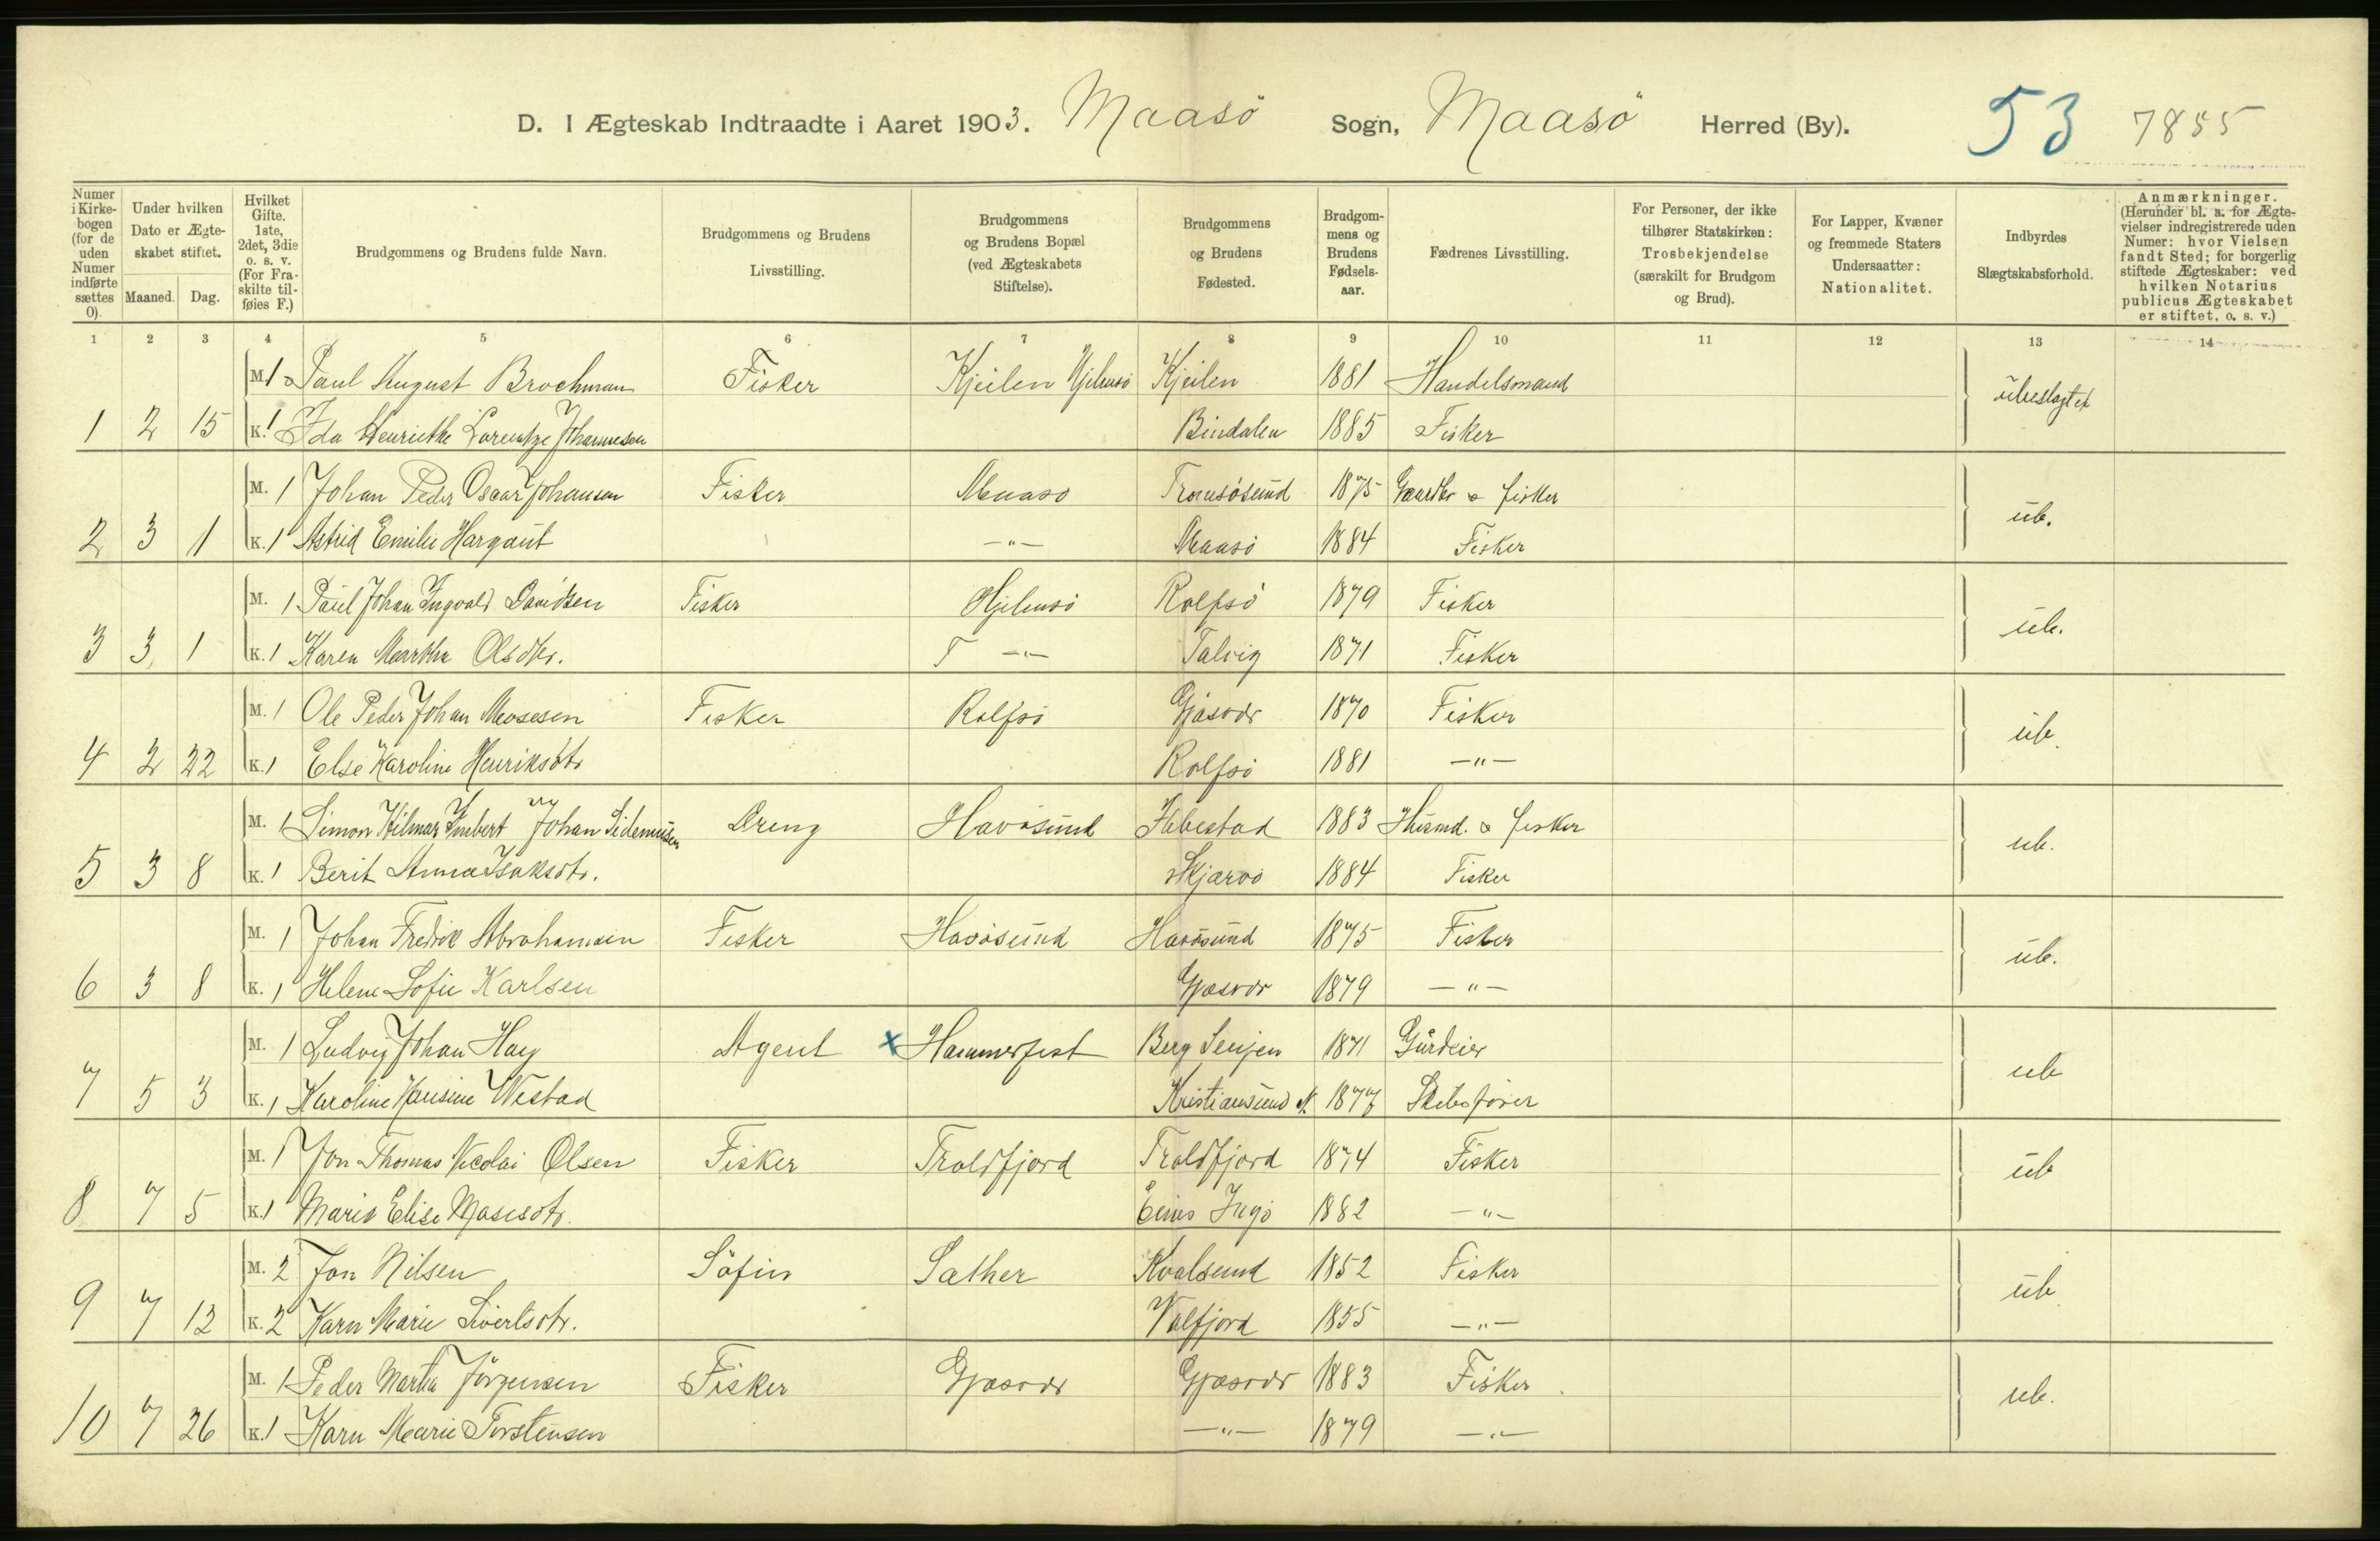 D. I Ægteskab Indtraadte i Aaret 1903. Maasö Sogn, Maasö Herred (By). 53 7855
Numer i Kirkebogen (for de uden Numer indførte sættes 0).
Under hvilken Dato er Ægteskabet stiftet. Maaned. Dag.
Hvilket Gifte. 1ste, 2det, 3die o. s. v. (For Fraskilte tilføies F.)
Brudgommens og Brudens fulde Navn.
Brudgommens og Brudens Livsstilling.
Brudgommens og Brudens Bopæl (ved Ægteskabets Stiftelse).
Brudgommens og Brudens Fødested.
Brudgommens og Brudens Fødselsaar.
Fædrenes Livsstilling.
For Personer, der ikke tilhører Statskirken: Trosbekjendelse (særskilt for Brudgom og Brud).
For Lapper, Kvæner og fremmede Staters Undersaatter: Nationalitet.
Indbyrdes Slægtskabsforhold.
Anmærkninger. (Herunder bl. a. for Ægtevielser indregistrerede uden Numer: hvor Vielsen fandt Sted; for borgerlig stiftede Ægteskaber: ved hvilken Notarius publicus Ægteskabet er stiftet, o. s. v.)
1 2 3 4 5 6 7 8 9 10 11 12 13 14
M. 1 Paul August Brochman Fisker Kjeilen Hjelmsö Kjeilen 1881 Handelsmand ubeslagtet
1 2 15 K. 1 Ida Henriethe Lorentze Johannesen Bindalen 1885 Fisker
M. 1 Johan Peder Oscar Johansen Fisker Maaso Tromsösund 1875 Gaardbr & fisker ub.
2 3 1 K. 1 Astrid Emilie Hargaut —"— Maasö 1884 Fisker
M. 1 Paul Johan Ingvald Davidsen Fisker Hjelmsö Rolfsö 1879 Fisker ub.
3 3 1 K. 1 Karen Martha Olsdtr. —"— Talvig 1871 Fisker
M. 1 Ole Peder Johan Mosesen Fisker Rolfsö Gjäsvær 1870 Fisker ub
4 2 22 K. 1 Else Karoline Henriksdtr Rolfsö 1881 —"—
M. 1 Simon Hilmar Imbert Johan Sidenius Dreng Havösund Ibbestad 1883 Husmd. & fisker ub.
5 3 8 K. 1 Berit Anna Isaksdtr. Skjærvö 1884 Fisker
M. 1 Johan Fredrik Abrahamsen Fisker Havösund Havösund 1875 Fisker ub.
6 3 8 K. 1 Helene Sofie Karlsen Gjæsvær 1879 —"—
M. 1 Ludvig Johan Hay Agent x Hammerfest Berg Senjen 1871 Gårdeier ub
7 5 3 K. 1 Karoline Hansine Westad Kristiansund N. 1877 Skibsfører
M. 1 Jon Thomas Nicolai Olsen Fisker Troldfjord Troldfjord 1874 Fisker ub
8 7 5 K. 1 Marie Elise Mosesdtr. Ingö 1882 —"—
M. 2 Jon Nilsen Söfin Sather Kvalsund 1852 Fisker ub
9 7 12 K. 2 Karn Marie Sivertsdtr. Valfjord 1855 —"—
M. 1 Peder Martin Jörgensen Fisker Gjæsvær Gjæsvær 1883 Fisker ub.
10 7 26 K. 1 Karn Marie Torstensen —"— 1879 —"—